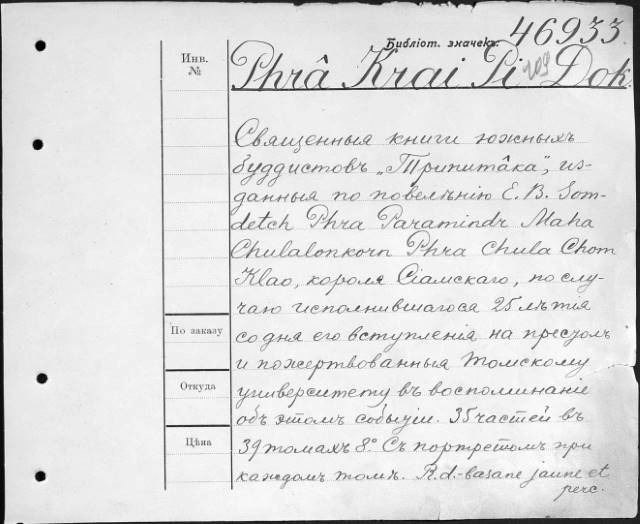 46933
Библіот. значекъ.
Инв.
№
Phrâ Krai Pi Dok.
109
Священныя книги южныхъ
буддистовъ „Трипитâка“, из-
данныя по повелѣнію Е. В. Som-
detch Phra Paramindr Maha
Chulalonkorn Phra Chula Chom
Klao, короля Сіамскаго, по слу-
чаю исполнившагося 25 лѣтія
По заказу
со дня его вступленія на престолъ
и пожертвованныя Томскому
Откуда
университету въ воспоминаніе
объ этомъ событіи. 35 частей въ
Цѣна
39 томахъ 8°. Съ портретомъ при
каждомъ томѣ. R. d.-basane jaune et
perc.